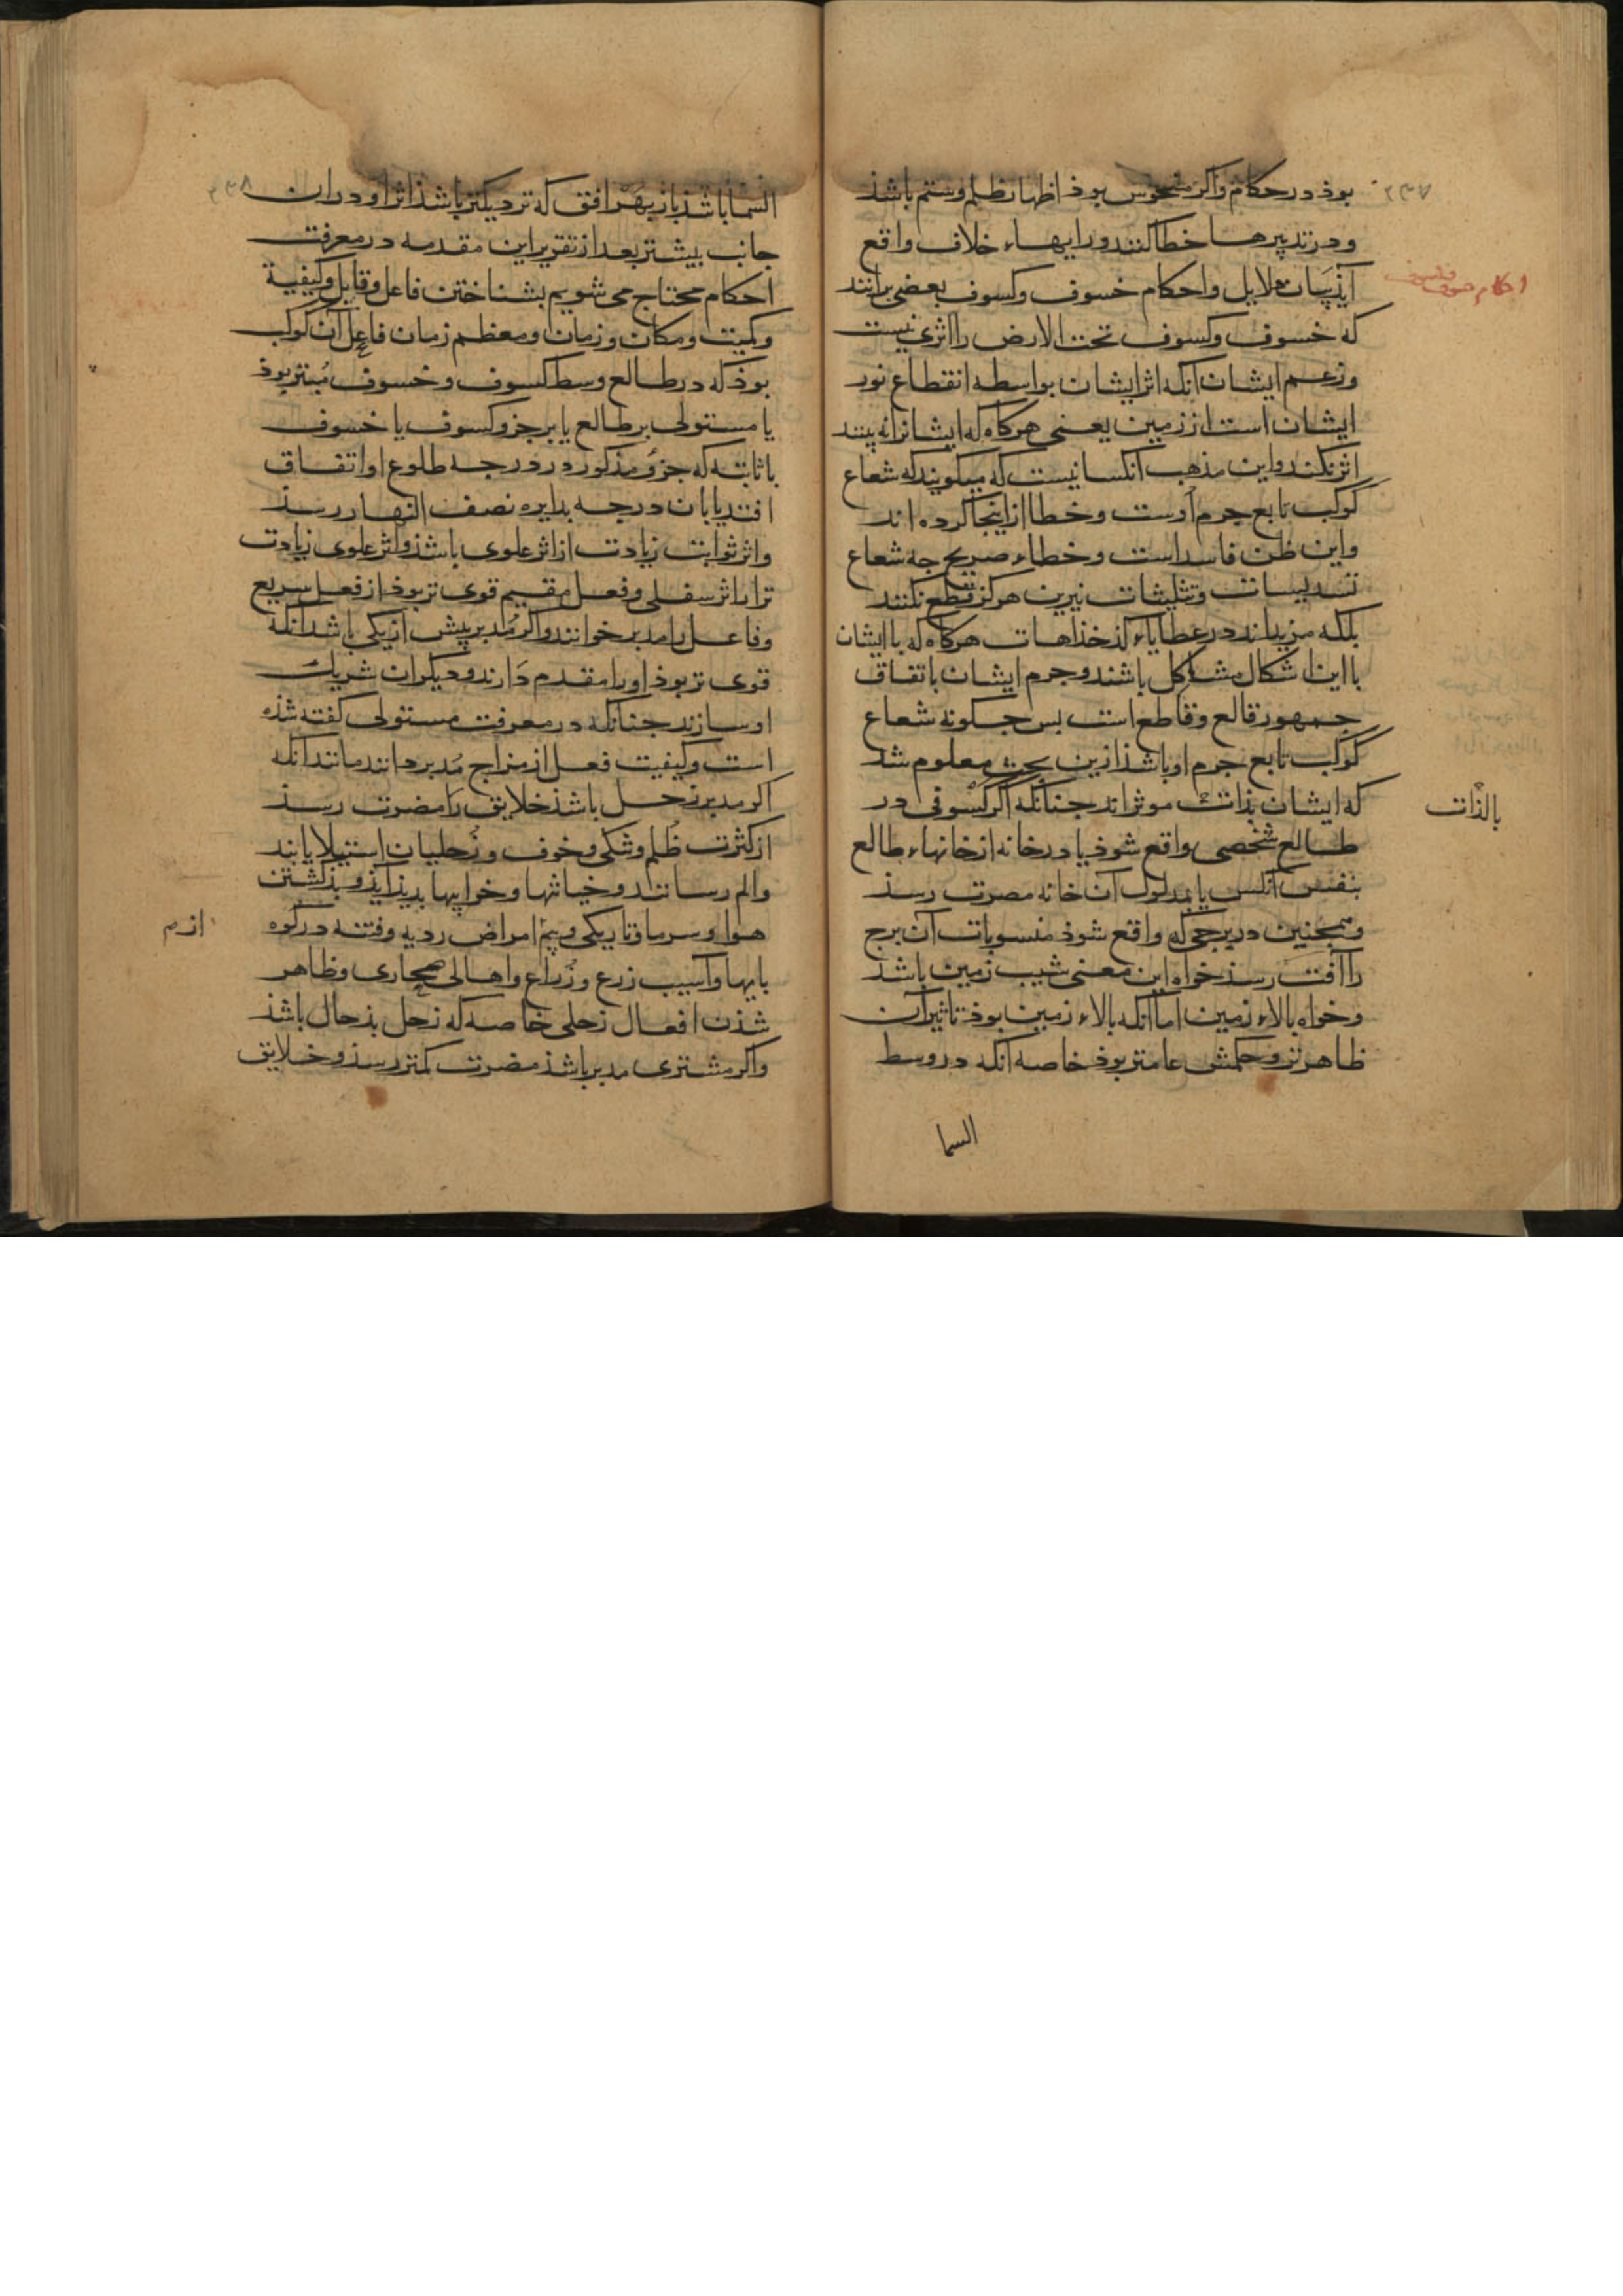 ۲۳۷
بوذ در حکام واکر منحوس بوذ اظهار ظلم وستم باشذ
ودر تدبیرها خطا کنند ورایهاء خلاف واقع
دلایل واحکام خسوف وکسوف بعضی برانند
احکام خسوف وکسوف
که خسوف وکسوف تحت الارض را اثری نیست
وزعم ایشان آنکه اثر ایشان بواسطه انقطاع نور
ایشان است از زمین یعنی هرکاه که ایشانرا نه بینند
اثر نکند واین مذهب آنکسانیست که میکویند که شعاع
کوکب تابع جرم اوست وخطا از اینجا کرده اند
واین ظن فاسد است وخطاء صریح جه شعاع
تسدیسات وتثلیثات نیرین هرکز قطع نکنند
بلکه مزیداند در عطایاء کذخذاهات هرکاه که با ایشان
با این اشکال مشاکل باشند وجرم ایشان باتفاق
جمهور قالع وقاطع است بس جکونه شعاع
کوکب تابع جرم او باشذ ازین بحث معلوم شد
که ایشان بذات موثراند جنانکه اکر کسوفی در
بالذات
طالع شخصی واقع شوذ یا در خانه از خانهاء طالع
بنفس آنکس یا بمدلول آن خانه مضرت رسذ
وهمجنین در برجی که واقع شوذ منسوبات آن برج
را آفت رسذ خواه این معنی شیب زمین باشذ
وخواه بالاء زمین اما آنکه بالاء زمین بوذ تاثیر آن
ظاهرتر وحکمش عامتر بوذ خاصه آنکه در وسط
السما
۲۳۸
السما باشذ باز بهر افق که نزدیکتر باشذ اثر او در ان
جانب بیشتر بعد از تقریر این مقدمه در معرفت
احکام محتاج می شویم بشناختن فاعل وقابل وکیفیة
وکمیت ومکان وزمان ومعظم زمان فاعل آن کوکب
بوذ که در طالع وسط کسوف وخسوف مبتز بوذ
یا مستولی بر طالع یا بر جزو کسوف یا خسوف
یا ثابته که جزو مذکور در درجه طلوع او اتفاق
افتد یا بان درجه بدایره نصف النهار رسذ
واثر ثوابت زیادت از اثر علوی باشذ واثر علوی زیادت
تر از اثر سفلی وفعل مقیم قوی تر بوذ از فعل سریع
وفاعل را مدبر خوانند واکر مدبر بیش از یکی باشد آنکه
قوی تر بوذ او را مقدم دارند ودیکران شریک
او سازند جنانکه در معرفت مستولی کفته شذه
است وکیفیت فعل از مزاج مدبر دانند مانند آنکه
اکر مدبر زحل باشذ خلایق را مضرت رسذ
از کثرت ظلم وشکی وخوف وزحلیان استیلا یابند
والم رسانند وخیانتها وخرابیها بدید آیذ وبذکشتن
هوا وسرما وتاریکی وبیم امراض ردیه وفتنه درکوه
بایها وآسیب زرع وزراع واهالی صحاری وظاهر
شذن افعال زحلی خاصه که زحل بذحال باشذ
واکر مشتری مدبر باشذ مضرت کمتر رسذ وخلایق